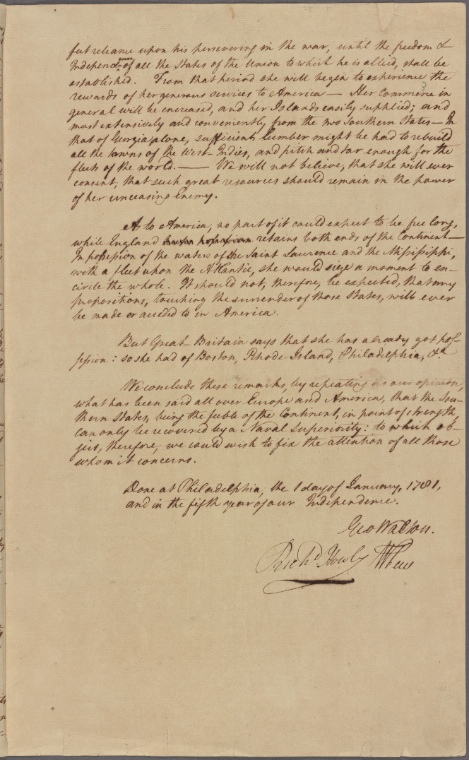 ful reliance upon his persevering in the war, until the freedom &
Independence of all the States of the Union to which he is allied, shall be
established. From that period she will begin to experience the
rewards of her generous services to America — Her Commerce in
general will be encreased, and her Islands easily supplied; and
most extensively and conveniently from the two Southern States — In
that of Georgia alone, sufficient Lumber might be had to rebuild
all the towns of the West-Indies, and pitch and tar enough for the
fleets of the world. — We will not believe, that she will ever
consent, that such great resources should remain in the power
of her unceasing Enemy.
As to America, no part of it could expect to be free long,
while England retains both ends of the Continent —
In possession of the waters of the Saint Laurence and the Mississippi,
with a fleet upon the Atlantic, she would seize a moment to en-
circle the whole. It should not, therefore, be expected, that any
propositions, touching the surrender of those States, will ever
be made or acceded to in America.
But Great Britain says that she has already got pos-
session: so she had of Boston, Rhode Island, Philadelphia, &ca.
We conclude these remarks, by repeating as our opinion,
what has been said all over Europe and America, that the Sou-
thern States, being the feeble of the Continent, in point of strength,
can only be recovered by a Naval Superiority: to which ob-
ject, therefore, we could wish to fix the attention of all those
whom it concerns.
Done at Philadelphia, the 1 day of January, 1781,
and in the fifth year of our Independence.
Geo Walton.
Richd. Howly